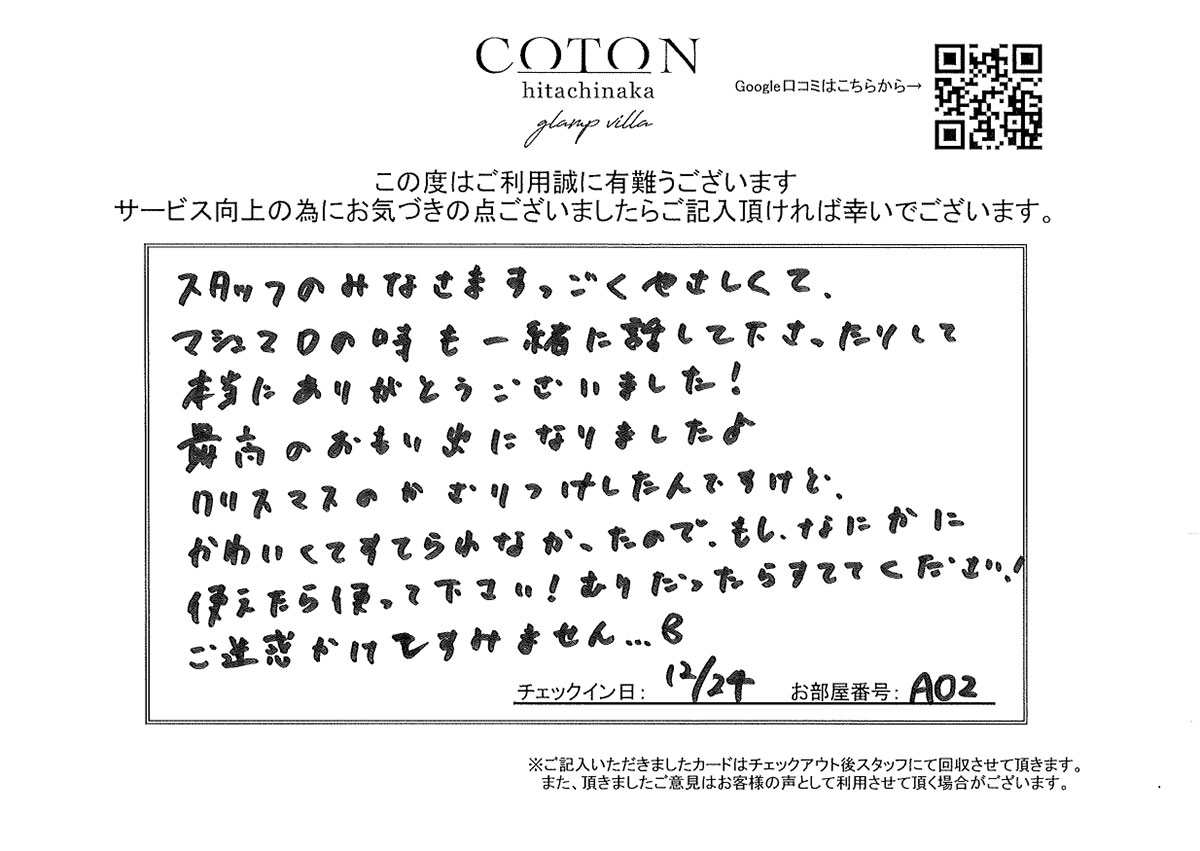 COTON
hitachinaka
glamp villa
Google口コミはこちらから→
この度はご利用誠に有難うございます
サービス向上の為にお気づきの点ございましたらご記入頂ければ幸いでございます。
スタッフのみなさますっごくやさしくて、
マシュマロの時も一緒に話して下さったりして
本当にありがとうございました!
最高のおもい出になりました♪
クリスマスのかざりつけしたんですけど、
かわいくてすてられなかったので、もし、なにかに
使えたら使って下さい!むりだったらすててください!
ご迷惑かけてすみません...
チェックイン日: 12/24 お部屋番号: A02
※ご記入いただきましたカードはチェックアウト後スタッフにて回収させて頂きます。
また、頂きましたご意見はお客様の声として利用させて頂く場合がございます。